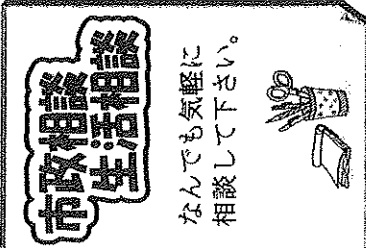 市政相談
生活相談
なんでも気軽に
相談して下さい。